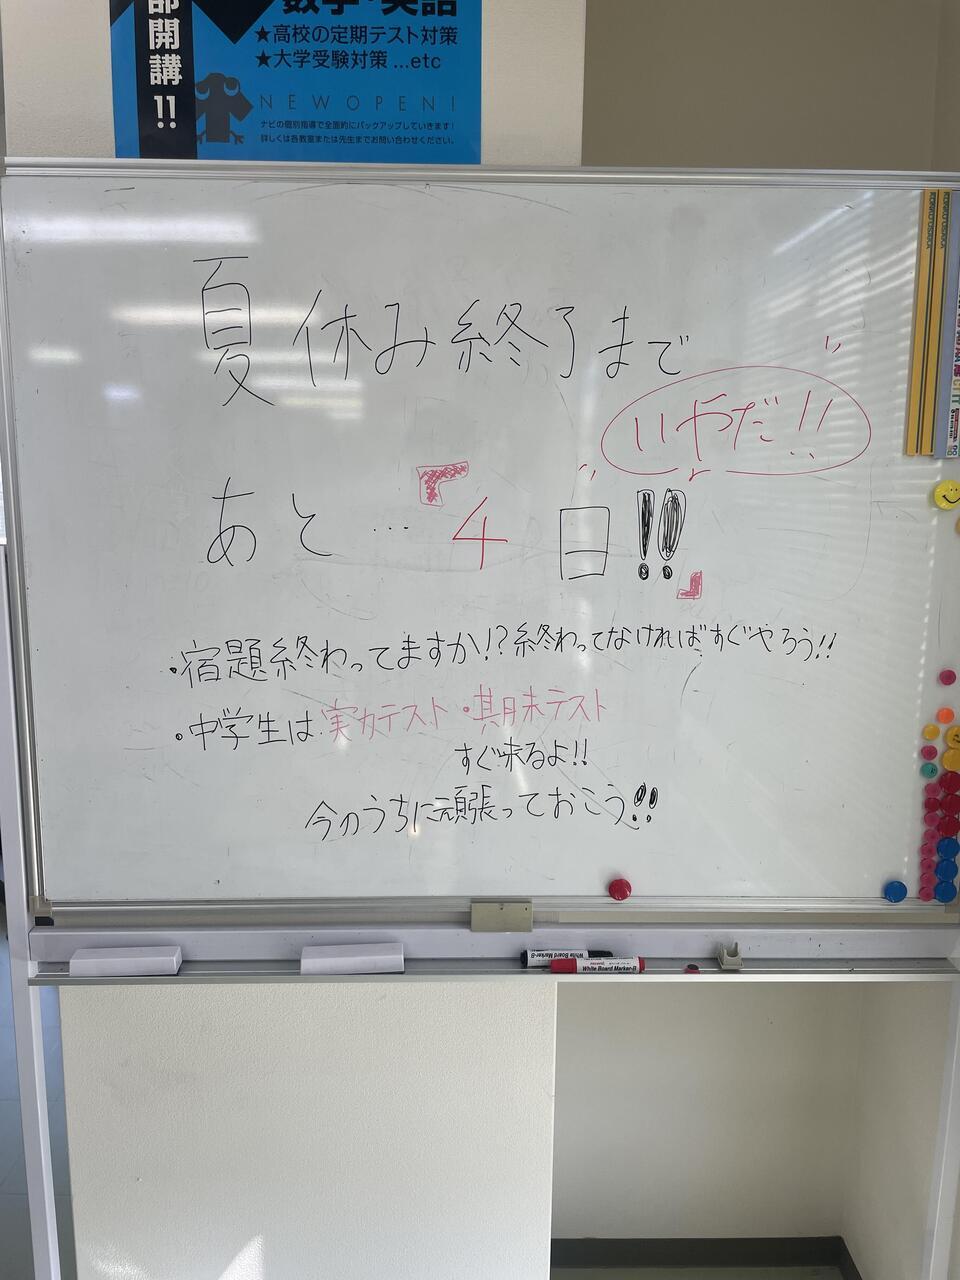 部開講!!
数学・英語
★高校の定期テスト対策
★大学受験対策...etc
NEWOPEN!
ナビの個別指導で全面的にバックアップしていきます!
詳しくは各教室または先生までお問い合わせください。
夏休み終了まで
いやだ!!
あと…『4日!!』
・宿題終わってますか!?終わってなければすぐやろう!!
・中学生は実力テスト・期末テスト
すぐ来るよ!!
今のうちに頑張っておこう!!
White Board Marker-B
White Board Marker-B